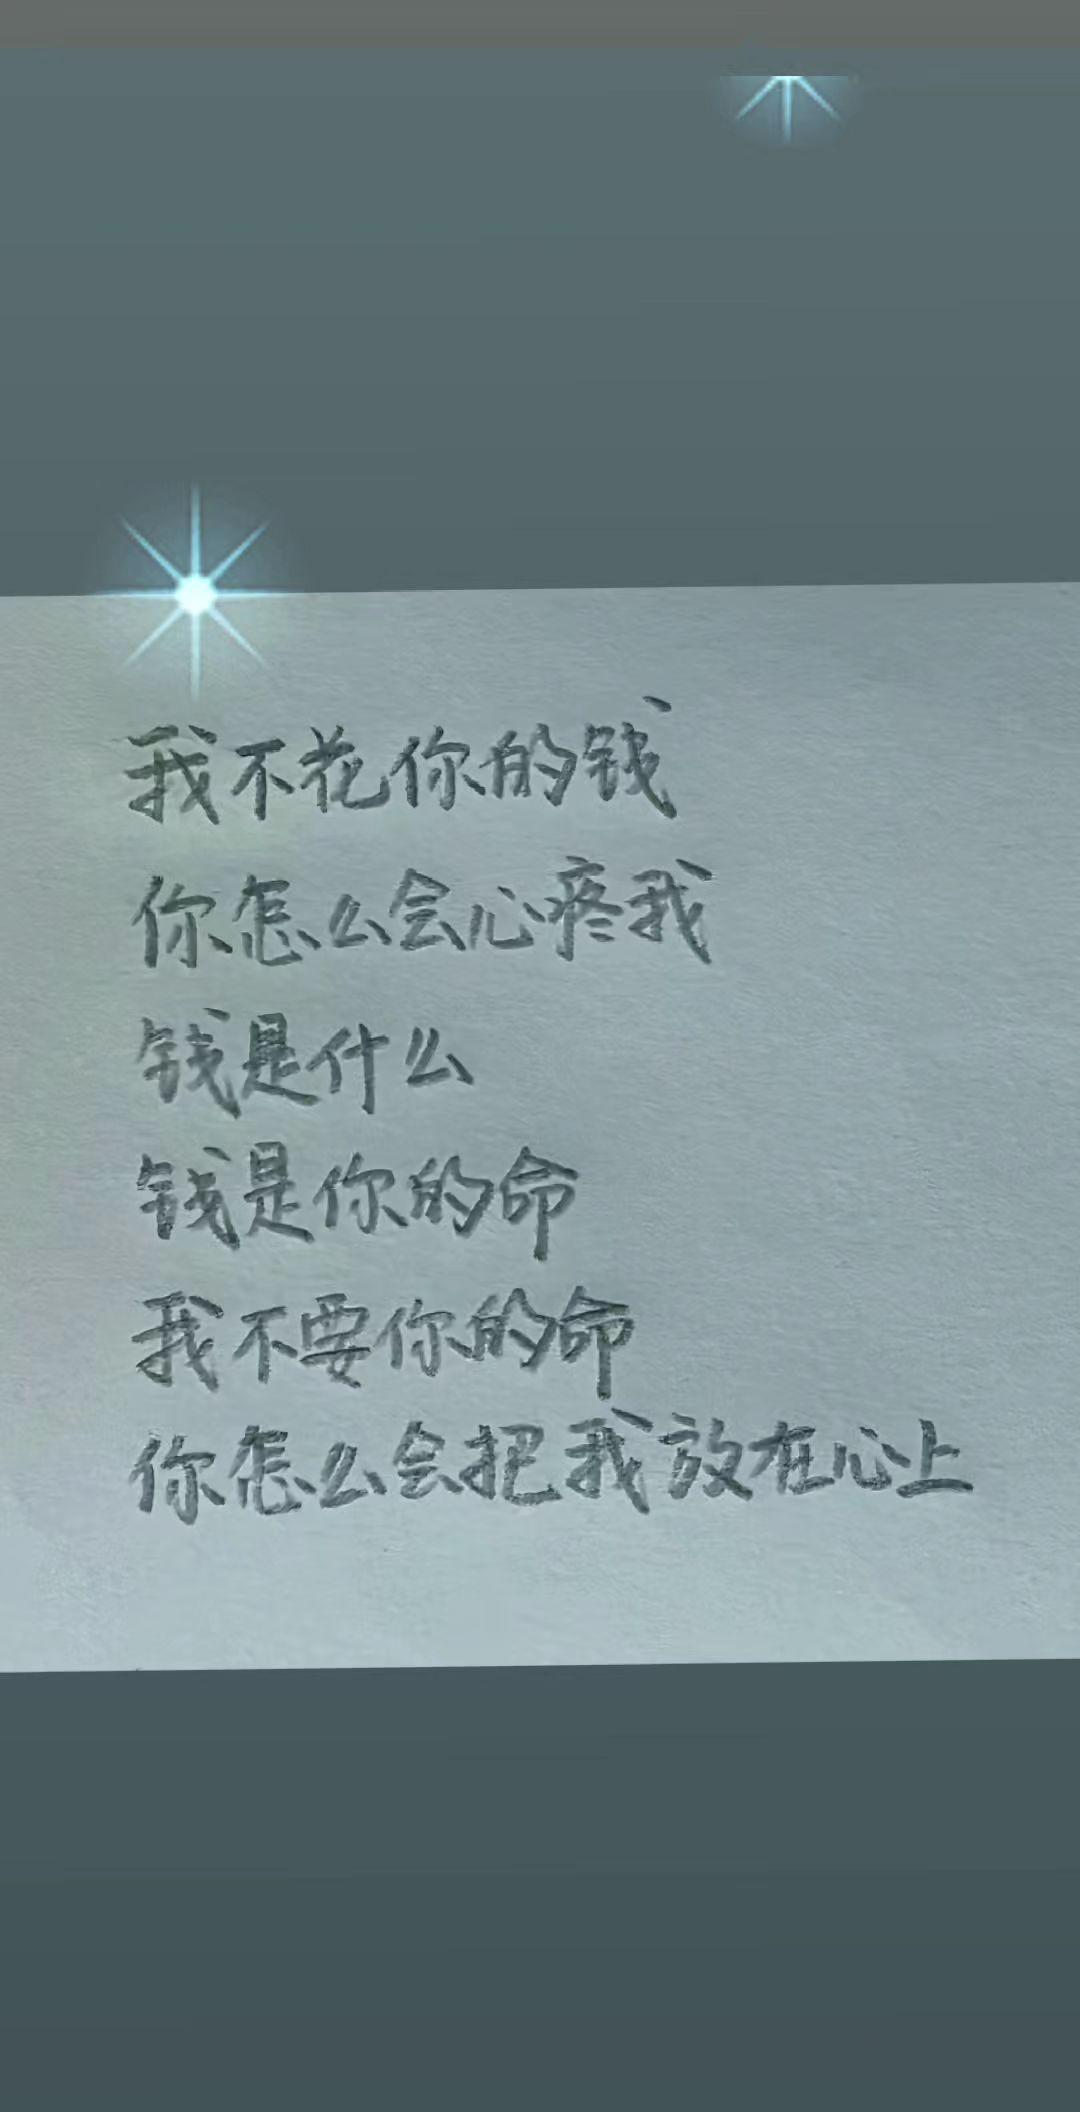 我不花你的钱
你怎么会心疼我
钱是什么
钱是你的命
我不要你的命
你怎么会把我放在心上